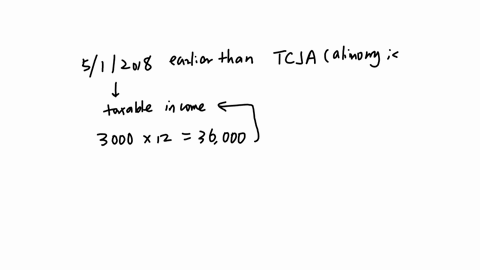 5/1/2018 earlier than TCJA (alimony is
↓
taxable income ←
3000 × 12 = 36,000